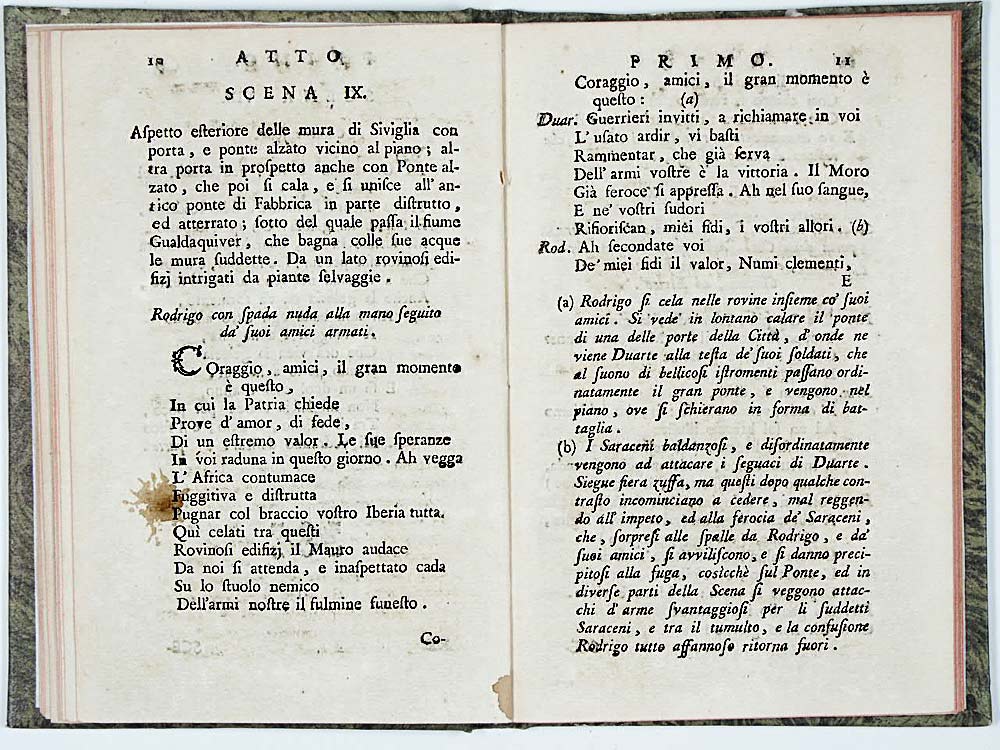 10 ATTO
SCENA IX.
Aſpetto eſteriore delle mura di Siviglia con
porta, e ponte alzato vicino al piano; al-
tra porta in proſpetto anche con Ponte al-
zato, che poi ſi cala, e ſi uniſce all' an-
tico ponte di Fabbrica in parte diſtrutto,
ed atterrato; ſotto del quale paſſa il fiume
Gualdaquiver, che bagna colle ſue acque
le mura ſuddette. Da un lato rovinoſi edi-
fizj intrigati da piante ſelvaggie.
Rodrigo con ſpada nuda alla mano ſeguito
da' ſuoi amici armati.
COraggio, amici, il gran momento
è queſto,
In cui la Patria chiede
Prove d' amor, di fede,
Di un eſtremo valor. Le ſue ſperanze
In voi raduna in queſto giorno. Ah vegga
L' Africa contumace
Fuggitiva e diſtrutta
Pugnar col braccio voſtro Iberia tutta.
Quì celati tra queſti
Rovinoſi edifizj il Mauro audace
Da noi ſi attenda, e inaſpettato cada
Su lo ſtuolo nemico
Dell'armi noſtre il fulmine funeſto.
Co-
PRIMO. 11
Coraggio, amici, il gran momento è
queſto: (a)
Duar. Guerrieri invitti, a richiamare in voi
L' uſato ardir, vi baſti
Rammentar, che già ſerva
Dell' armi voſtre è la vittoria. Il Moro
Già feroce ſi appreſſa. Ah nel ſuo ſangue,
E ne' voſtri ſudori
Rifioriſcan, miei fidi, i voſtri allori. (b)
Rod. Ah ſecondate voi
De' miei fidi il valor, Numi clementi,
E
(a) Rodrigo ſi cela nelle rovine inſieme co' ſuoi
amici. Si vede in lontano calare il ponte
di una delle porte della Città, d'onde ne
viene Duarte alla teſta de' ſuoi ſoldati, che
al ſuono di bellicoſi iſtromenti paſſano ordi-
natamente il gran ponte, e vengono nel
piano, ove ſi ſchierano in forma di bat-
taglia.
(b) I Saraceni baldanzoſi, e diſordinatamente
vengono ad attacare i ſeguaci di Duarte.
Siegue fiera zuffa, ma queſti dopo qualche con-
traſto incominciano a cedere, mal reggen-
do all' impeto, ed alla ferocia de' Saraceni,
che, ſorpreſi alle ſpalle da Rodrigo, e da'
ſuoi amici, ſi avviliſcono, e ſi danno preci-
pitoſi alla fuga, cosìcchè ſul Ponte, ed in
diverſe parti della Scena ſi veggono attac-
chi d' arme ſvantaggioſi per li ſuddetti
Saraceni, e tra il tumulto, e la confuſione
Rodrigo tutto affannoſo ritorna fuori.